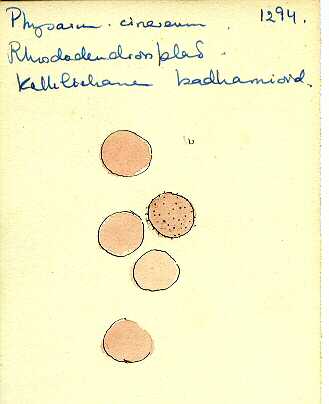 Physarum cinereum. 1294.
Rhododendronblad
Kalklichane badhamioid.